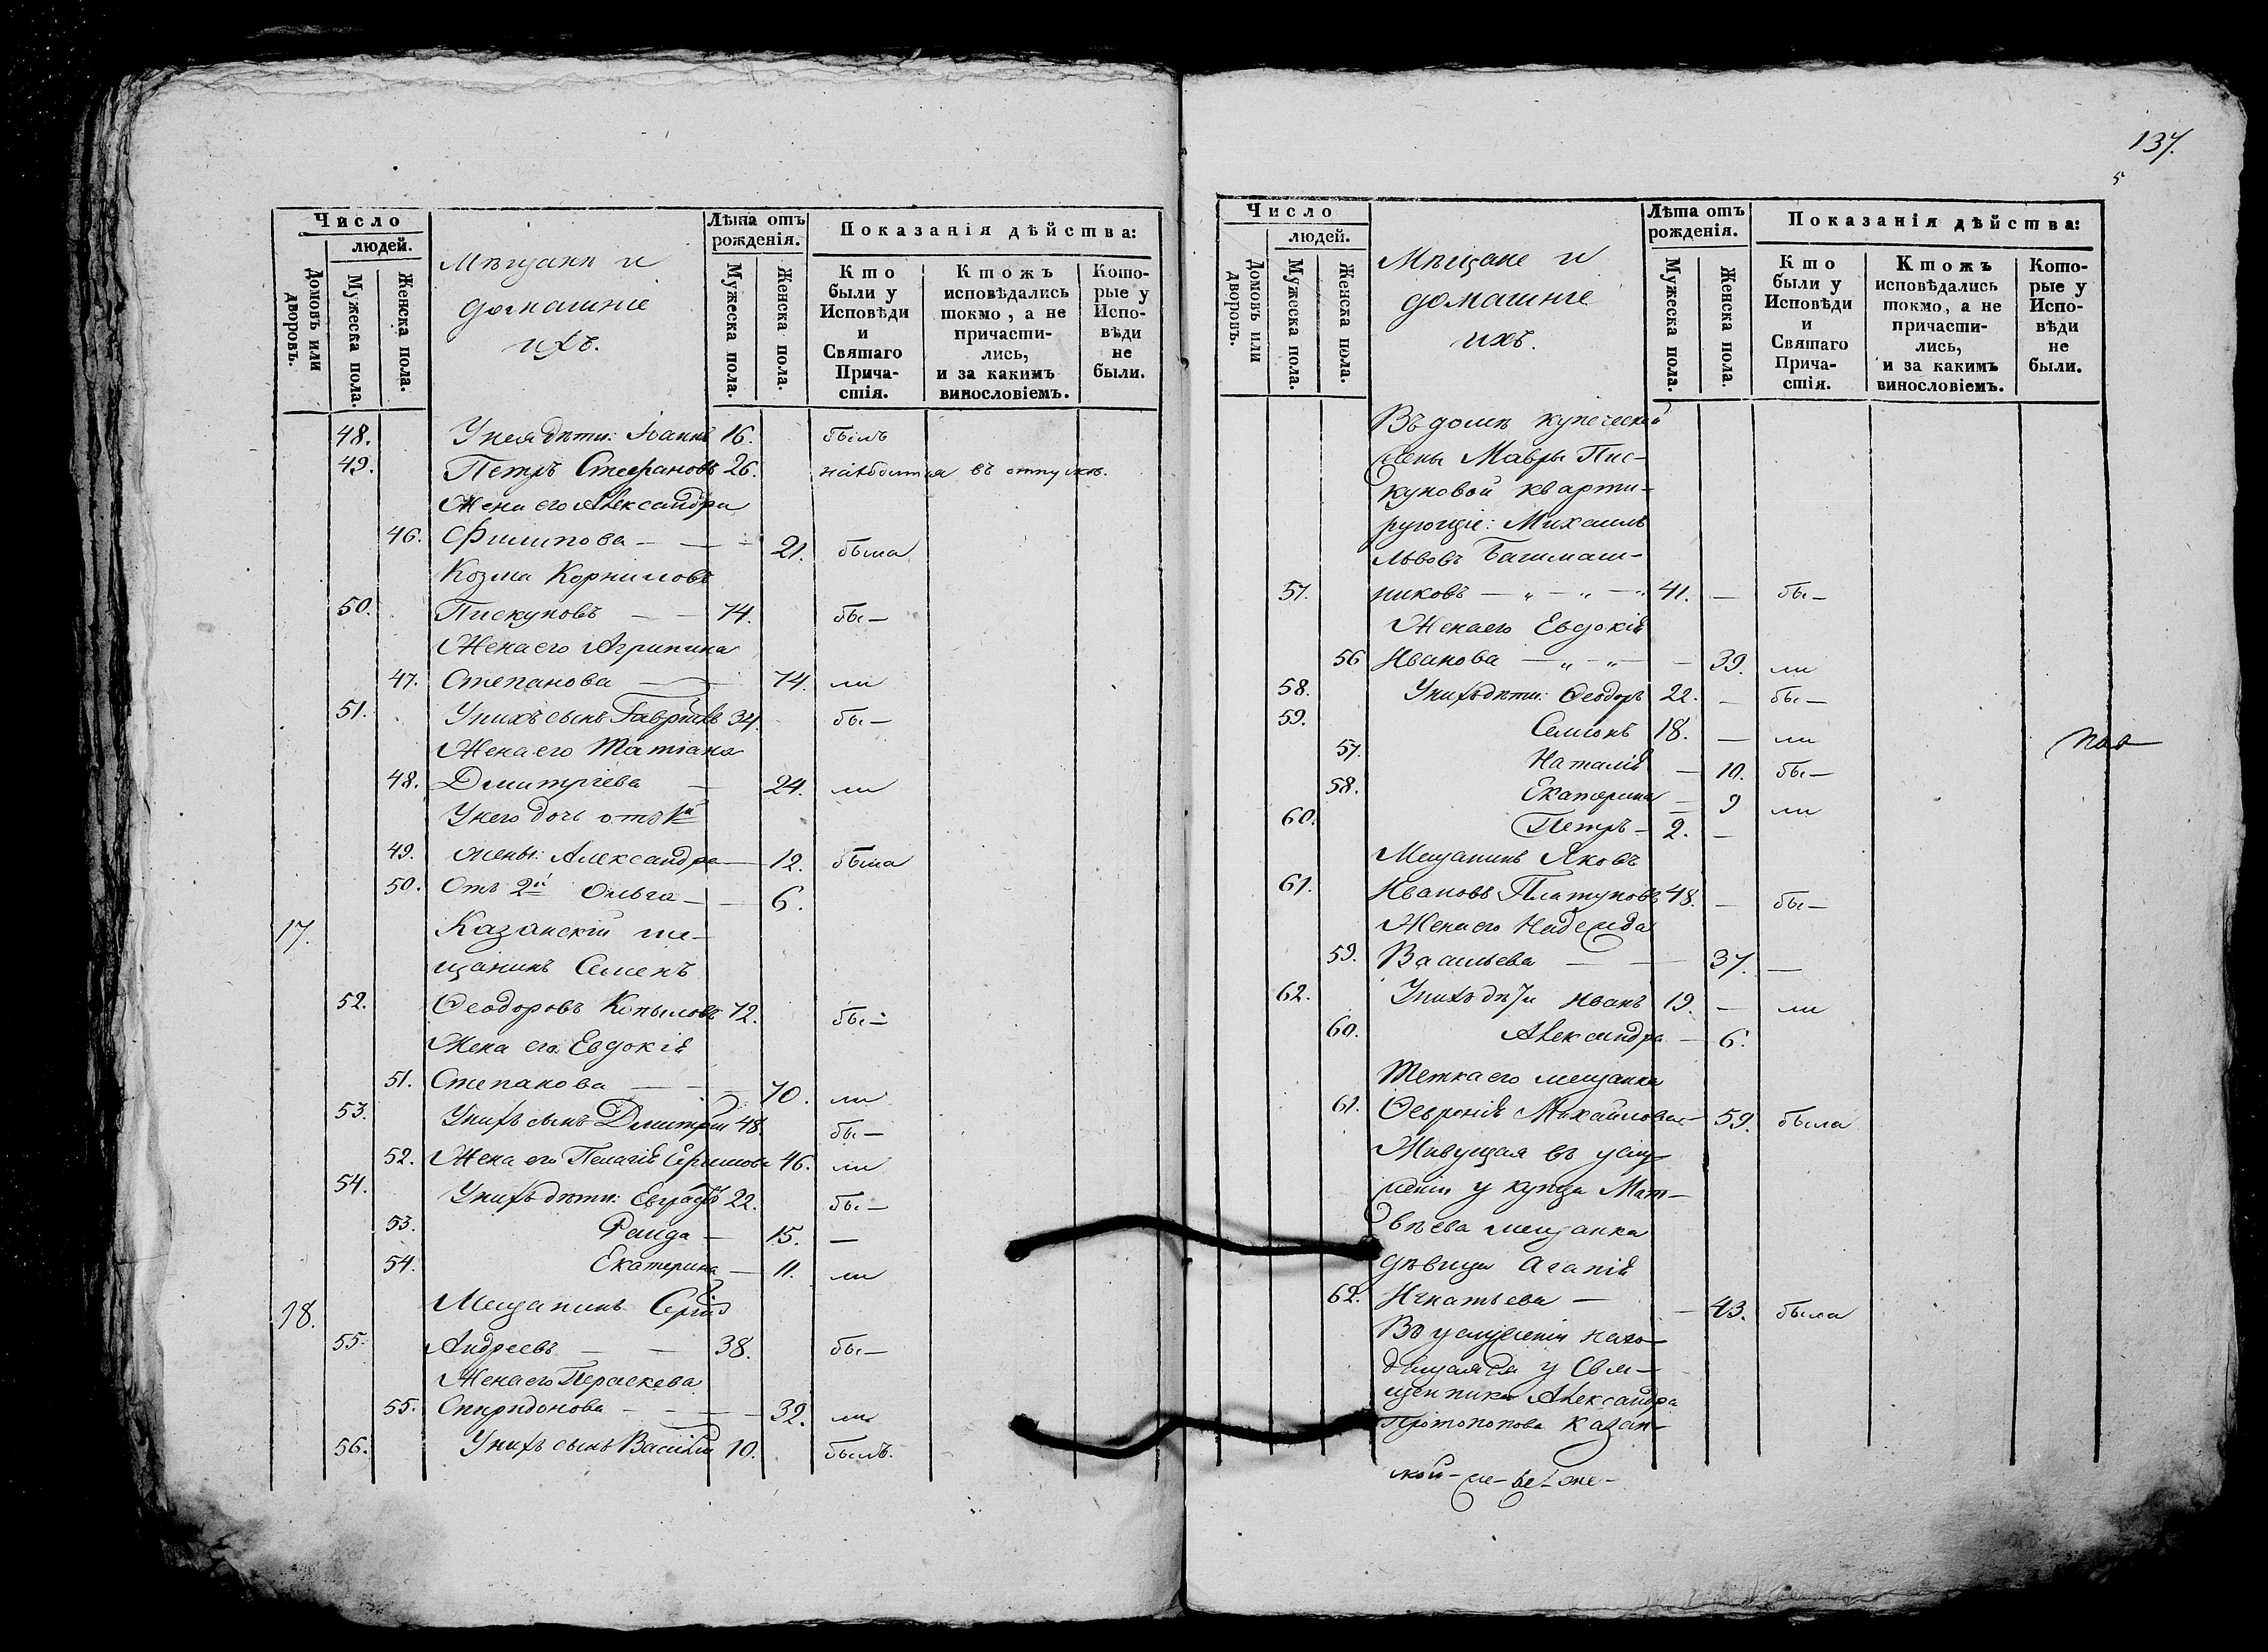 137.
5
Число
людей.
Домовъ или дворовъ.
Мужеска пола.
Женска пола.
Мѣщане и
домашніе
ихъ.
Лѣта отъ
рожденія.
Мужеска пола.
Женска пола.
Показанія дѣйства:
Кто
были у
Исповѣди
и
Святаго
Прича-
стія.
Ктожъ
исповѣдались
токмо, а не
причасти-
лись,
и за какимъ
винословіемъ.
Кото-
рые у
Испо-
вѣди
не
были.
48. У нея дѣти: Іоаннъ 16. былъ
49. Петръ Стефановъ 26. находится въ отпускѣ.
Жена его Александра
46. Филипова — — — 21. была
Козма Корниловъ
50. Пискуновъ — — 74. бы—
Жена его Агрипина
47. Степанова — 74. ли
51. У нихъ сынъ Гавріилъ 34. бы—
Жена его Татіана
48. Дмитріева — 24. ли
У него дочь отъ 1й
49. жены: Александра — 12. была
50. Отъ 2й Ольга — — 6.
17. Казанскій мѣ-
щанинъ Семенъ
52. Ѳеодоровъ Копыловъ 72. бы—
Жена его Евдокія
51. Степанова — — — 70. ли
53. У нихъ сынъ Дмитрій 48. бы—
52. Жена его Пелагія Ефимова 46. ли
54. У нихъ дѣти: Евграфъ 22. бы—
53. Раида — 15. —
54. Екатерина — 11. ли
18. Мещанинъ Сергій
55. Андреевъ — — 38. бы—
Жена его Параскева
55. Спиридонова — — — 32. ли
56. У нихъ сынъ Василій 10. былъ.
Число
людей.
Домовъ или дворовъ.
Мужеска пола.
Женска пола.
Мѣщане и
домашніе
ихъ.
Лѣта отъ
рожденія.
Мужеска пола.
Женска пола.
Показанія дѣйства:
Кто
были у
Исповѣди
и
Святаго
Прича-
стія.
Ктожъ
исповѣдались
токмо, а не
причасти-
лись,
и за какимъ
винословіемъ.
Кото-
рые у
Испо-
вѣди
не
были.
Въ домѣ купеческой
жены Мавры Пис-
куновой кварти-
рующіе: Михаилъ
Львовъ Башмаш-
57. никовъ — „ — „ — „ 41. — бы—
Жена его Евдокія
56 Иванова — „ — „ — — 39. ли
58. У нихъ дѣти: Ѳеодоръ 22. — бы—
59. Семіонъ 18. — ли
57. Наталія — 10. бы—
58. Екатерина — 9 ли
60. Петръ — 2. —
Мещанинъ Яковъ
61. Ивановъ Платуновъ 48. — бы—
Жена его Надежда
59. Васильева — — — 37. —
62. У нихъ дѣти Иванъ 19. — ли
60. Александра — 6.
Тетка его мещанка
61. Ѳевронія Михайлова — 59. была
Живущая въ услу-
женіи у купца Мат-
вѣева мещанка
дѣвица Агапія
62. Игнатьева — — 43. была
Въ услуженіи нахо-
дящаяся у Свя-
щенника Александра
Протопопова Казан-
ской —